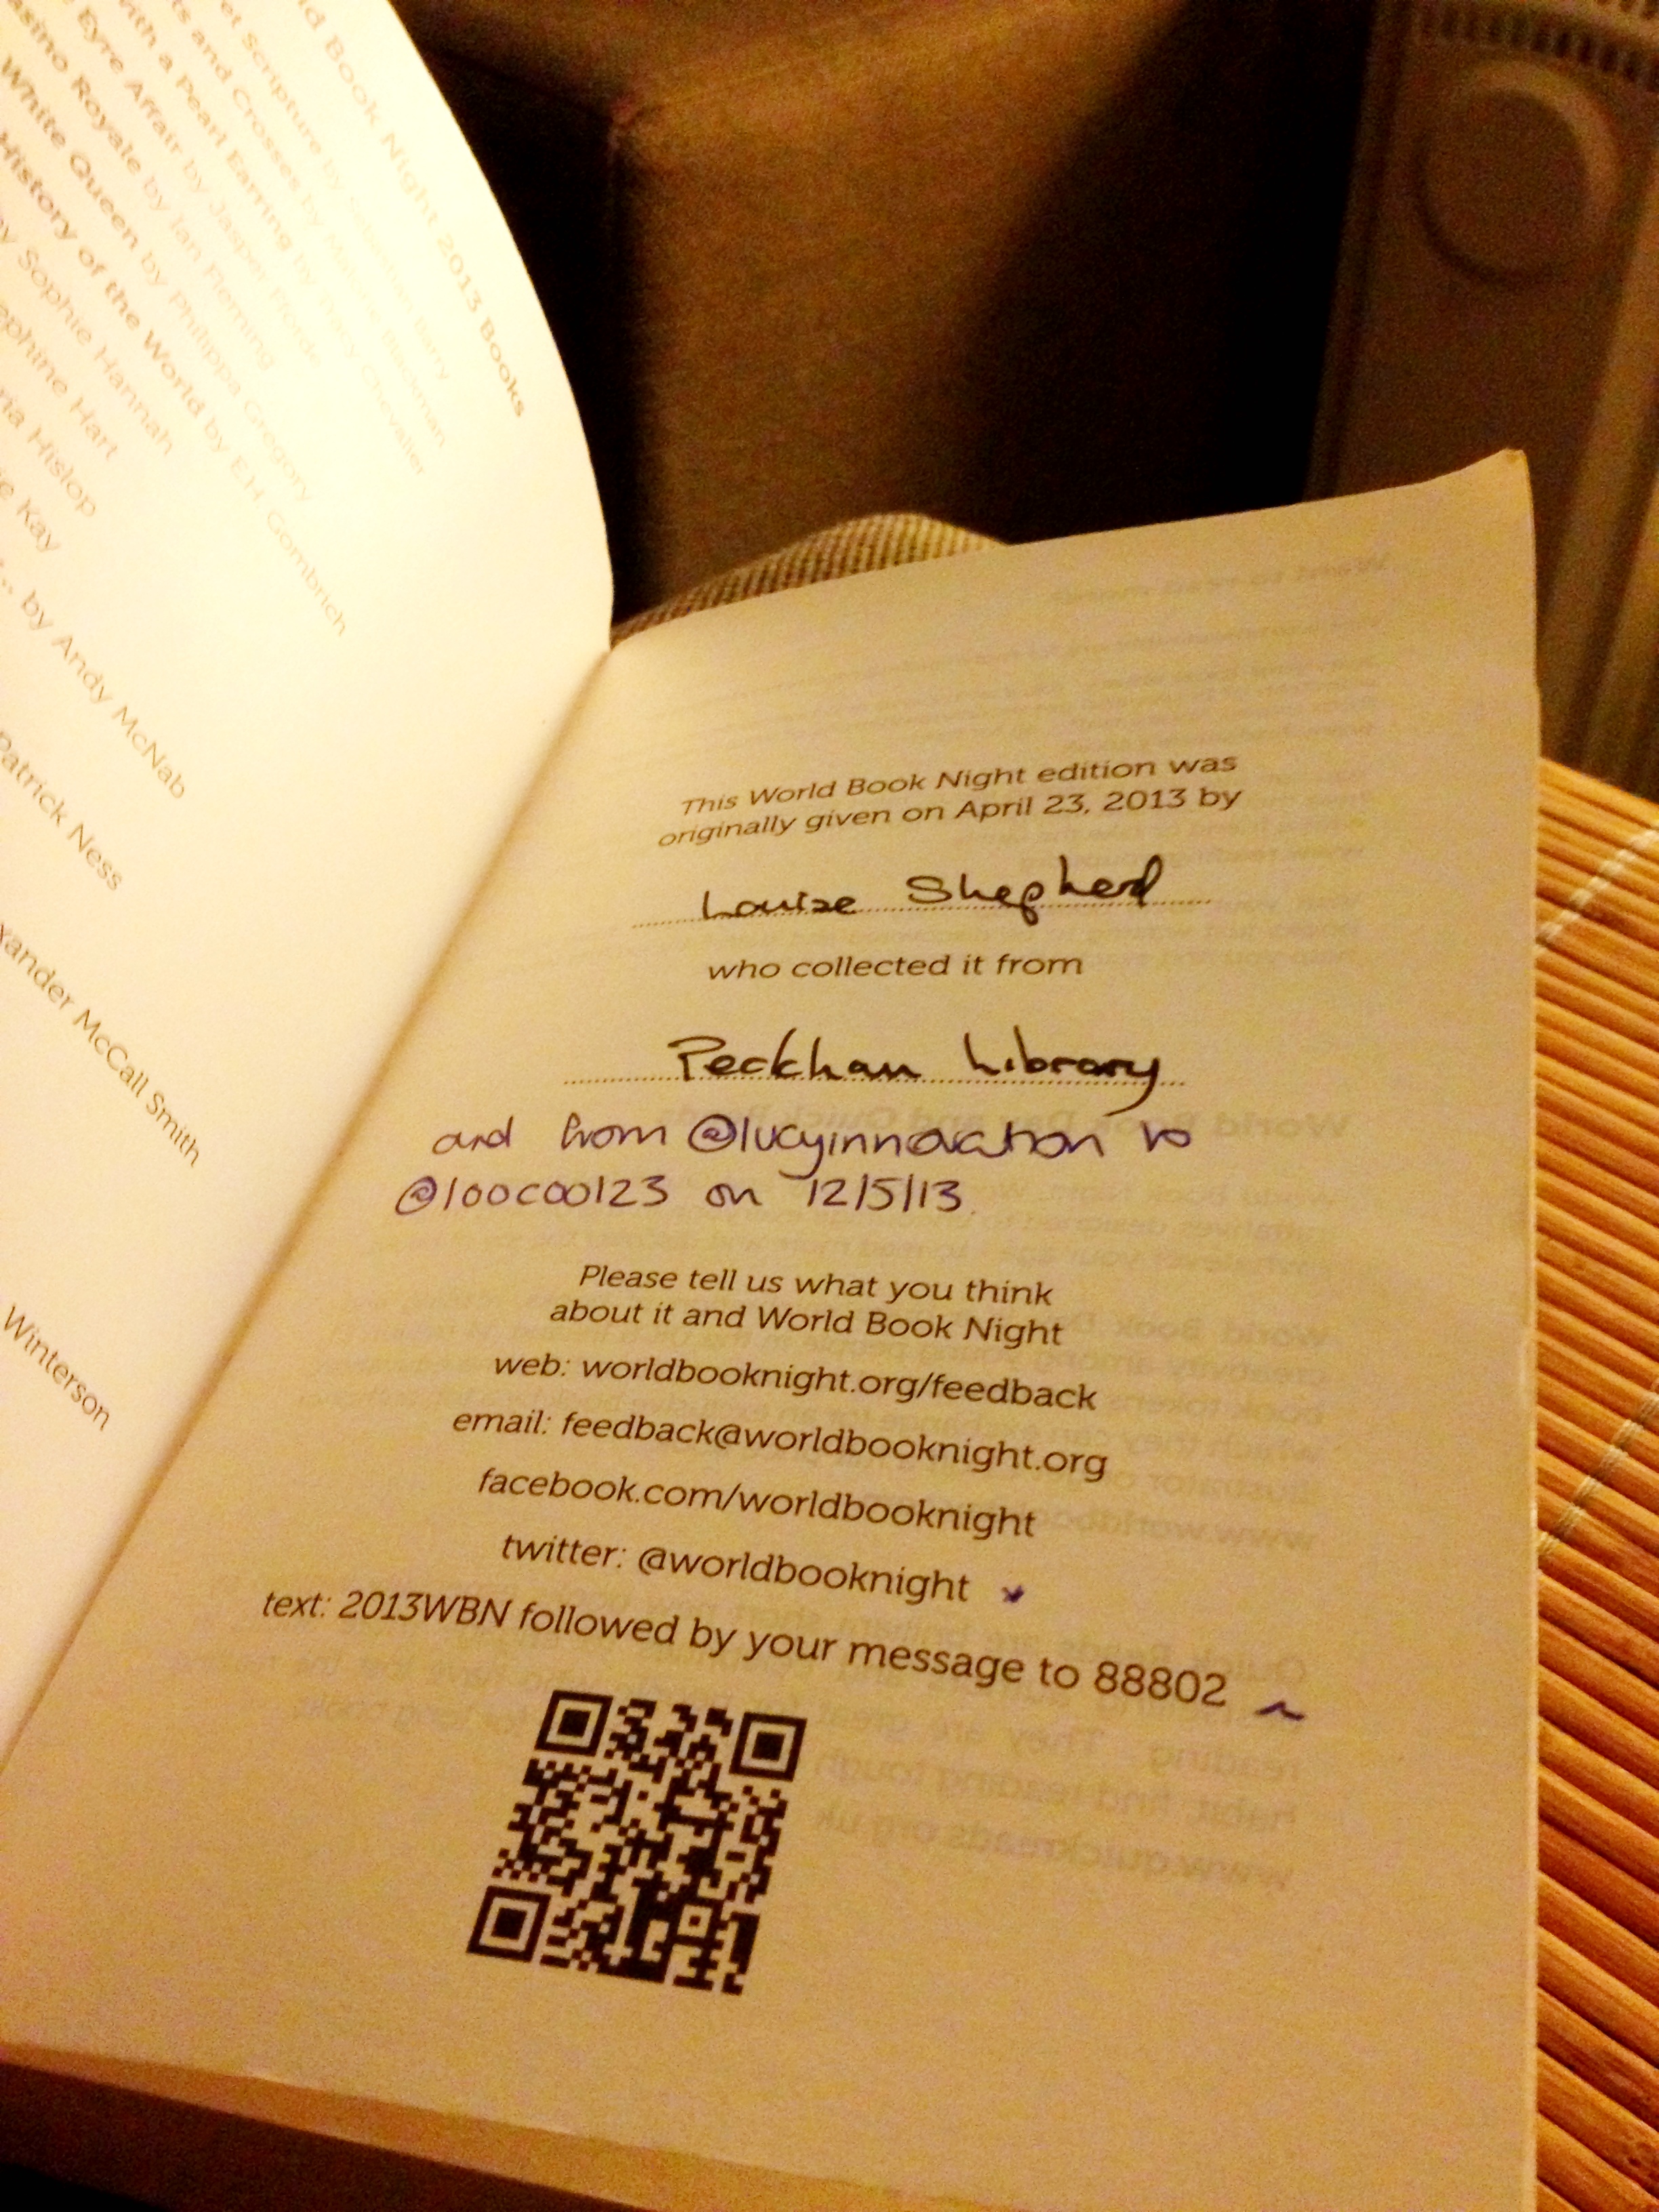 d Book Night 2013 Books
et Scripture by Sebastian Barry
ts and Crosses by Malorie Blackman
with a Pearl Earring by Tracy Chevalier
Eyre Affair by Jasper Fforde
asino Royale by Ian Fleming
White Queen by Philippa Gregory
History of the World by E.H. Gombrich
by Sophie Hannah
ephine Hart
ria Hislop
e Kay
... by Andy McNab
Patrick Ness
xander McCall Smith
Winterson
This World Book Night edition was
originally given on April 23, 2013 by
Louise Shepherd
who collected it from
Peckham Library
and from @lucyinnovation to
@loocoo123 on 12/5/13.
Please tell us what you think
about it and World Book Night
web: worldbooknight.org/feedback
email: feedback@worldbooknight.org
facebook.com/worldbooknight
twitter: @worldbooknight
text: 2013WBN followed by your message to 88802